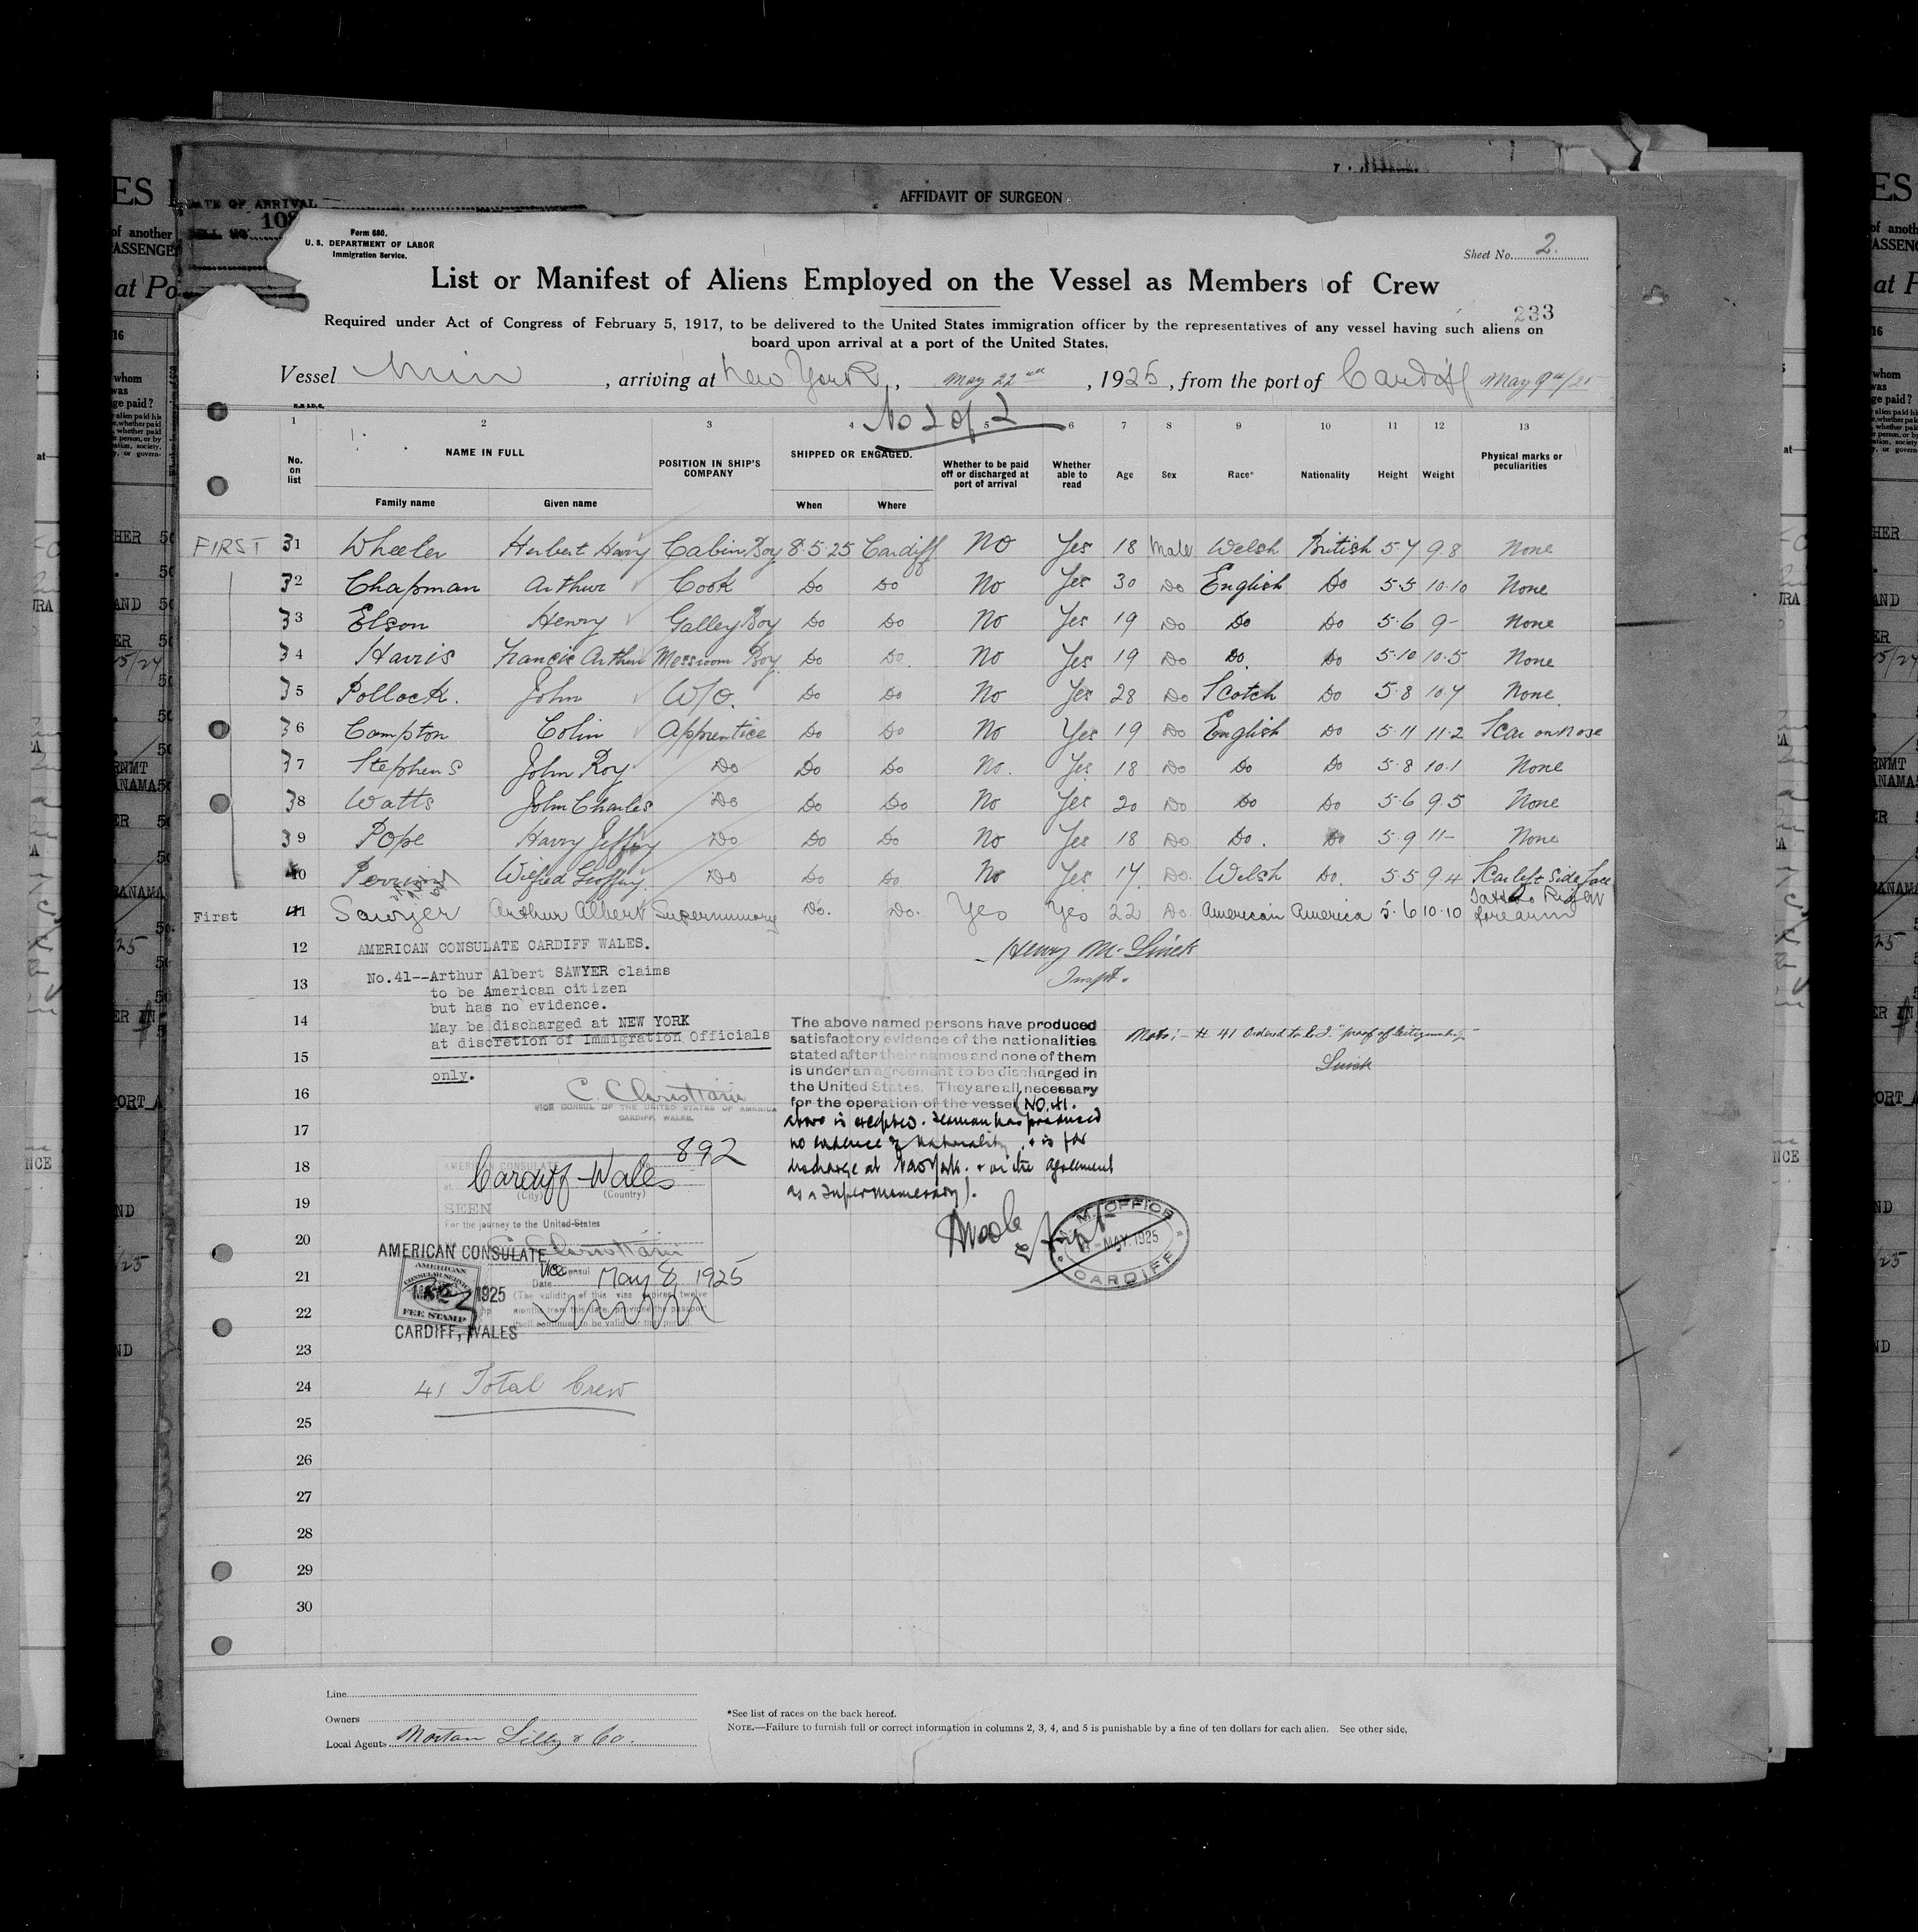 AFFIDAVIT OF SURGEON
DATE OF ARRIVAL
Form 680.
U. S. DEPARTMENT OF LABOR
Immigration Service.
Sheet No. 2.
List or Manifest of Aliens Employed on the Vessel as Members of Crew
233
Required under Act of Congress of February 5, 1917, to be delivered to the United States immigration officer by the representatives of any vessel having such aliens on
board upon arrival at a port of the United States.
Vessel Min, arriving at New York, May 22nd, 1925, from the port of Cardiff May 9th/25
No 2 of 2
1 2 3 4 5 6 7 8 9 10 11 12 13
No. on list NAME IN FULL POSITION IN SHIP'S COMPANY SHIPPED OR ENGAGED. Whether to be paid off or discharged at port of arrival Whether able to read Age Sex Race* Nationality Height Weight Physical marks or peculiarities
Family name Given name When Where
FIRST 31 Wheeler Herbert Harry Cabin Boy 8.5.25 Cardiff No Yes 18 Male Welsh British 5.7 9 8 None
32 Chapman Arthur Cook Do Do No Yes 30 Do English Do 5.5 10.10 None
33 Elson Henry Galley Boy Do Do No Yes 19 Do Do Do 5.6 9- None
34 Harris Francis Arthur Messroom Boy Do Do. No Yes 19 Do Do. Do 5.10 10.5 None
35 Pollock. John W/O. Do Do No Yes 28 Do Scotch Do 5.8 10.7 None.
36 Compton Colin Apprentice Do Do No Yes 19 Do English Do 5.11 11.2 Scar on Nose
37 Stephens John Roy Do Do Do No. Yes 18 Do Do Do 5.8 10.1 None
38 Watts John Charles Do Do Do No Yes 20 Do Do Do 5.6 9.5 None
39 Pope Harry Jeffrey Do Do Do No Yes 18 Do Do. Do 5.9 11- None
40 Wilfred Geoffrey. Do Do Do No Yes 17. Do. Welsh Do. 5.5 9.4 Scar left side face
First 41 Sawyer Arthur Albert Supernumary Do. Do. Yes Yes 22 Do. American America 5.6 10.10 Tattoo Right forearm
12 AMERICAN CONSULATE CARDIFF WALES.
Henry M. Linek
Inspt.
13 No.41--Arthur Albert SAWYER claims
to be American citizen
but has no evidence.
14 May be discharged at NEW YORK
at discretion of Immigration Officials
15 only.
The above named persons have produced
satisfactory evidence of the nationalities
stated after their names and none of them
is under an agreement to be discharged in
the United States. They are all necessary
for the operation of the vessel (NO. 41.
above is excepted. Seaman has produced
no evidence of nationality, & is for
discharge at New York. & on the agreement
as a Supernumerary).
Note:- # 41 Ordered to "proof of citizenship"
Linek
16 C. Christiani
VICE CONSUL OF THE UNITED STATES OF AMERICA
CARDIFF, WALES.
17
892
18 AMERICAN CONSULATE
Cardiff Wales
(City) (Country)
19 SEEN
For the journey to the United States
20 C. Christiani
AMERICAN CONSULATE
Vice Consul
21 Date May 8, 1925
(The validity of this visa expires twelve
22 months from this date, provided the passport
itself continues to be valid for that period.
AMERICAN
CONSULAR SERVICE
$2
FEE STAMP
1925
CARDIFF, WALES
M. M. OFFICE
MAY 1925
CARDIFF
23
24 41 Total Crew
25
26
27
28
29
30
Line
Owners
Local Agents Morton Lilly & Co.
*See list of races on the back hereof.
NOTE.—Failure to furnish full or correct information in columns 2, 3, 4, and 5 is punishable by a fine of ten dollars for each alien. See other side,